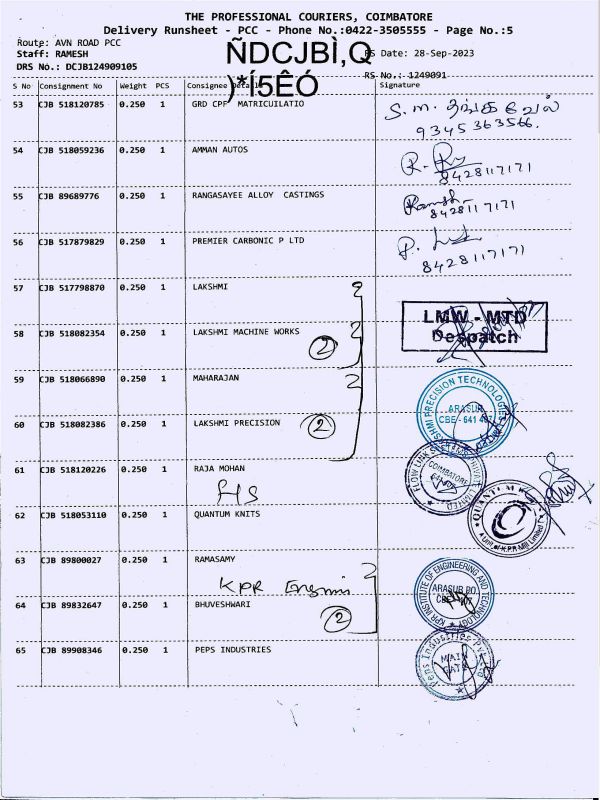 THE PROFESSIONAL COURIERS, COIMBATORE
Delivery Runsheet - PCC - Phone No.:0422-3505555 - Page No.:5
Route: AVN ROAD PCC
Staff: RAMESH
RS Date: 28-Sep-2023
DRS No.: DCJB124909105
ÑDCJBÌ,Q
)*Í5ÊÓ
RS No.: 1249091
S No Consignment No Weight PCS Consignee Details Signature
53 CJB 518120785 0.250 1 GRD CPF MATRICULATIO S. m. தங்கவேல்
9345363566.
54 CJB 518059236 0.250 1 AMMAN AUTOS
8428117171
55 CJB 89689776 0.250 1 RANGASAYEE ALLOY CASTINGS Ramesh
8428117171
56 CJB 517879829 0.250 1 PREMIER CARBONIC P LTD
8428117171
57 CJB 517798870 0.250 1 LAKSHMI
LMW - MTD
Despatch
58 CJB 518082354 0.250 1 LAKSHMI MACHINE WORKS
2
59 CJB 518066890 0.250 1 MAHARAJAN
LAKSHMI PRECISION TECHNOLOGIES
ARASUR
CBE - 641 407
60 CJB 518082386 0.250 1 LAKSHMI PRECISION
2
61 CJB 518120226 0.250 1 RAJA MOHAN
FLOW LINK SYSTEMS PRIVATE LIMITED
COIMBATORE
62 CJB 518053110 0.250 1 QUANTUM KNITS
QUANTUM KNITS
A Unit of K.P.R Mill Limited
63 CJB 89800027 0.250 1 RAMASAMY
KPR INSTITUTE OF ENGINEERING AND TECHNOLOGY
ARASUR PO
CBE 407
KPR Engini
64 CJB 89832647 0.250 1 BHUVESHWARI
2
65 CJB 89908346 0.250 1 PEPS INDUSTRIES
Peps Industries Pvt Ltd
MAIN
GATE